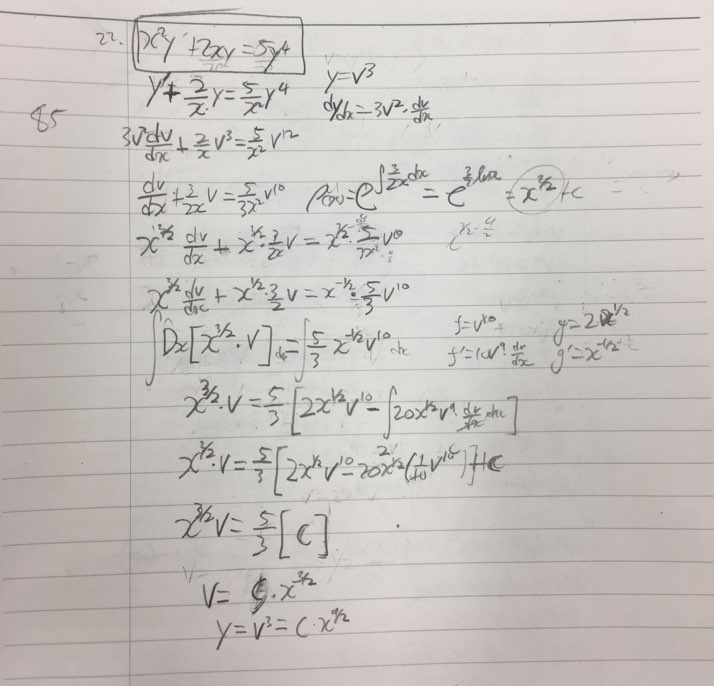 22. x²y' + 2xy = 5y⁴
y' + 2/x y = 5/x² y⁴ y = v³
85 dy/dx = 3v² · dv/dx
3v² dv/dx + 2/x v³ = 5/x² v¹²
dv/dx + 3/2x v = 5/3x² v¹⁰ ρ(x) = e^∫3/2x dx = e^3/2 lnx = x^3/2 + c
x^3/2 dv/dx + x^3/2 · 3/2x v = x^3/2 · 5/3x² v¹⁰
x^3/2 dv/dx + x^1/2 · 3/2 v = x^-1/2 · 5/3 v¹⁰
∫ Dx[x^3/2 · v] dx = ∫ 5/3 x^-1/2 v¹⁰ dx f = v¹⁰ g = 2x^1/2
f' = 10v⁹ · dv/dx g' = x^-1/2
x^3/2 · v = 5/3 [2x^1/2 v¹⁰ - ∫ 20x^1/2 v⁹ · dv/dx dx]
x^3/2 · v = 5/3 [2x^1/2 v¹⁰ - 20x^1/2 (1/10 v¹⁰)] + C
x^3/2 v = 5/3 [C]
v = C · x^-3/2
y = v³ = C · x^9/2